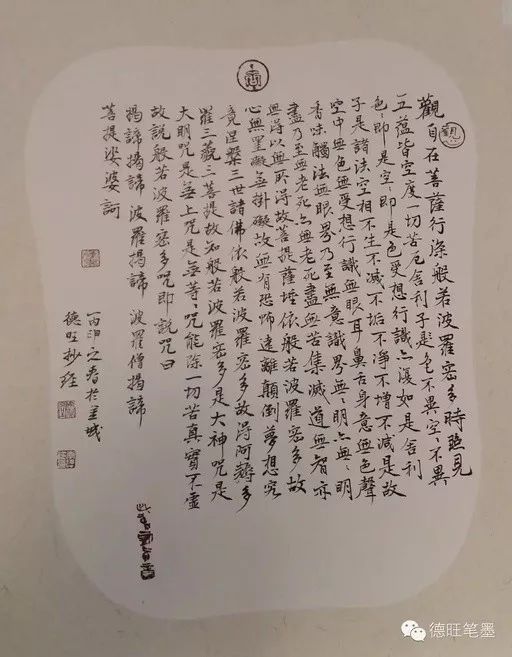 觀自在菩薩行深般若波羅密多時照見
五蘊皆空度一切苦厄舍利子是色不異空〻不異
色〻即是空〻即是色受想行識亦復如是舍利
子是諸法空相不生不滅不垢不淨不增不減是故
空中無色無受想行識無眼耳鼻舌身意無色聲
香味觸法無眼界乃至無意識界無〻明亦無〻明
盡乃至無老死亦無老死盡無苦集滅道無智亦
無得以無所得故菩提薩埵依般若波羅密多故
心無罣礙無掛礙故無有恐怖遠離顛倒夢想究
竟涅槃三世諸佛依般若波羅密多故得阿耨多
羅三藐三菩提故知般若波羅密多是大神咒是
大明咒是無上咒是無等〻咒能除一切苦真實不虛
故說般若波羅密多咒即說咒曰
揭諦揭諦 波羅揭諦 波羅僧揭諦
菩提娑婆訶
之春於
德旺抄經
德旺笔墨